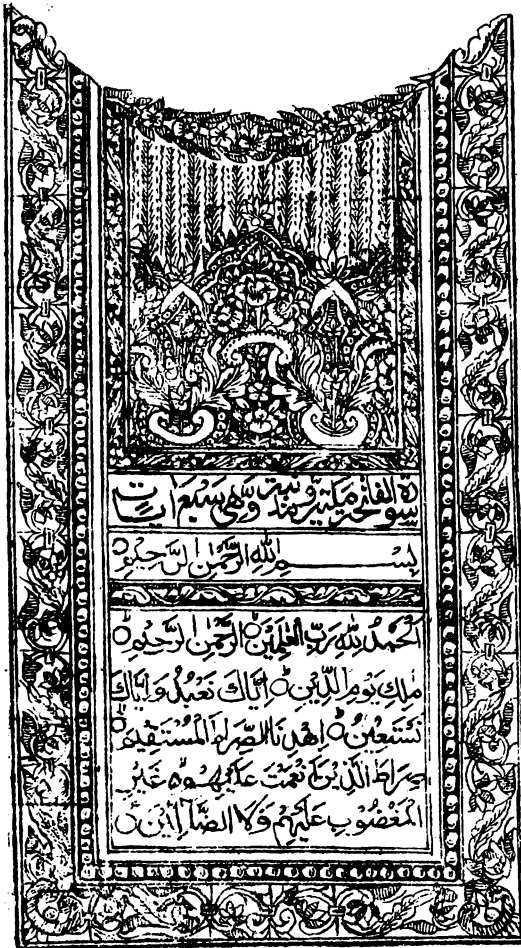 سورة الفاتحة مكية ومدنية وهي سبع آيات
بِسْمِ اللهِ الرَّحْمٰنِ الرَّحِيْمِ
اَلْحَمْدُ لِلّٰهِ رَبِّ الْعٰلَمِيْنَ الرَّحْمٰنِ الرَّحِيْمِ
مٰلِكِ يَوْمِ الدِّيْنِ اِيَّاكَ نَعْبُدُ وَاِيَّاكَ
نَسْتَعِيْنُ اِهْدِنَا الصِّرَاطَ الْمُسْتَقِيْمَ
صِرَاطَ الَّذِيْنَ اَنْعَمْتَ عَلَيْهِمْ غَيْرِ
الْمَغْضُوْبِ عَلَيْهِمْ وَلَا الضَّآلِّيْنَ